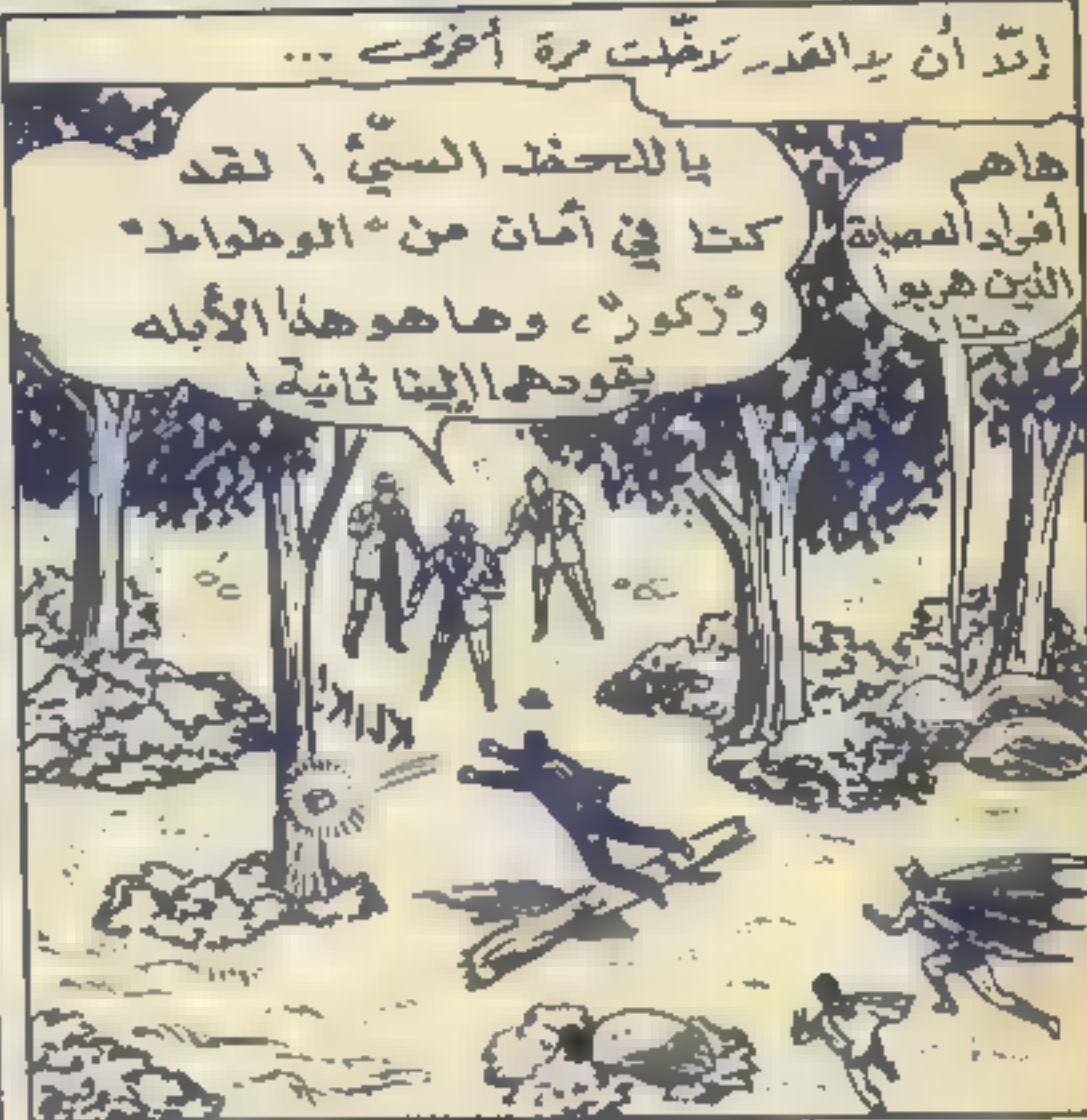 إنّد أن يد القدر تدخّلت مرة أخرى ...
هاهم
أفراد العصابة
الذين هربوا
منا !
يا للحظ السيّئ ! لقد
كنا في أمان من "الوطواط"
و"زكور"، وها هو هذا الأبله
يقودهما إلينا ثانية !